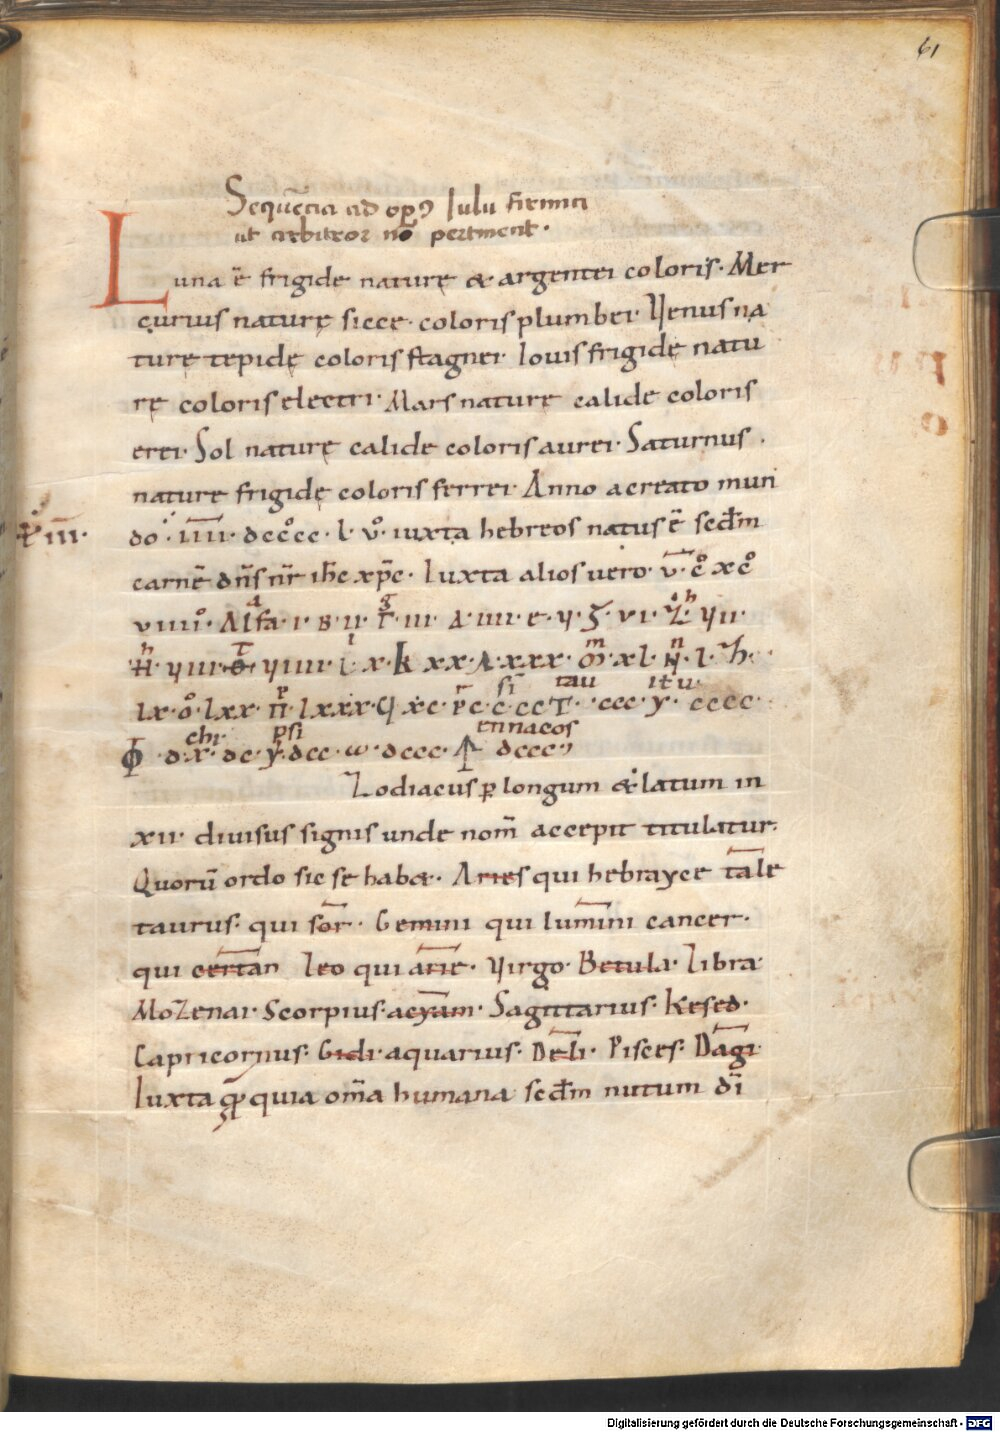 61
Sequẽtia ad opꝰ Iulii firmici
ut arbitror nõ pertinent·
Luna ẽ frigide naturę & argentei coloris· Mer
curius naturę sicce· coloris plumbei· Venus na
turę tepidę coloris stagnei· Iouis frigidę natu
rę coloris electri· Mars naturę calide coloris
erei· Sol naturę calide coloris aurei· Saturnus·
nature frigidę coloris ferrei· Anno a creato mun
do· IIII· dcccc· l· v· iuxta hebreos natus ẽ scdm
carnẽ dñs nr̃ ihc xp̃c· Iuxta alios uero· v̅· c̊ xc̊
viiii· Alfa· i· B· ii· Γ· iii· Δ· iiii· e· v· ϛ· vi· Z· vii·
H· viii· Θ· viiii· ι· x· k xx· λ· xxx· m· xl· N· l·
lx· o· lxx· π· lxxx· q xc· p c· c· cc T· ccc· y· cccc·
si tau
Φ· d· x· dc· ψ· dcc· ω· dccc· ↑ dcccc
chi psi ennacos
Zodiacus p̱ longum & latum in
xii· diuisus signis unde nom̃ accepit titulatur·
Quorũ ordo sic se habet· Aries qui hebrayce tale
taurus· qui sor· Gemini qui lumini cancer·
qui certan leo qui arie· Virgo· Betula· Libra
Mozenai· Scorpius· acyam· Sagittarius· Kesed·
Capricornus· Gidi· aquarius· Deli· Pisces· Dagi·
Iuxta quia om̃a humana scdm nutum dĩ
Digitalisierung gefördert durch die Deutsche Forschungsgemeinschaft - DFG